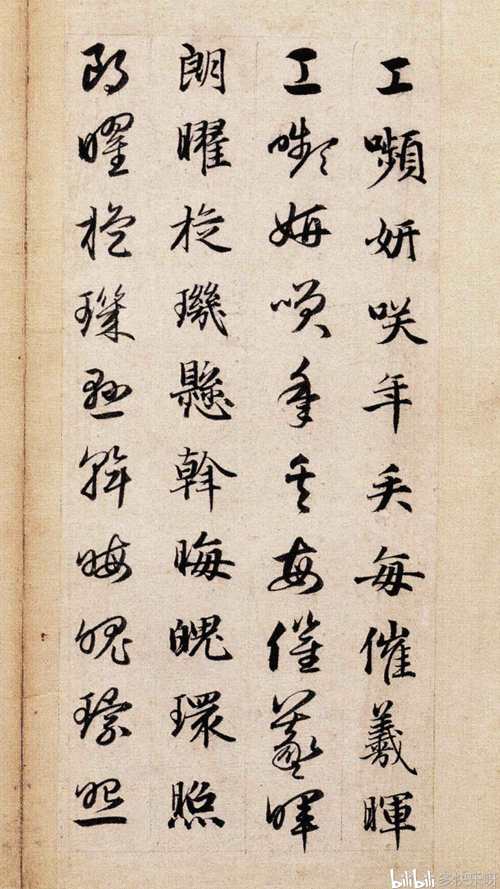 工嚬妍咲年矢每催羲暉
工嚬妍咲年矢每催羲暉
朗曜旋璣懸斡晦魄環照
朗曜旋璣懸斡晦魄環照
bilibili